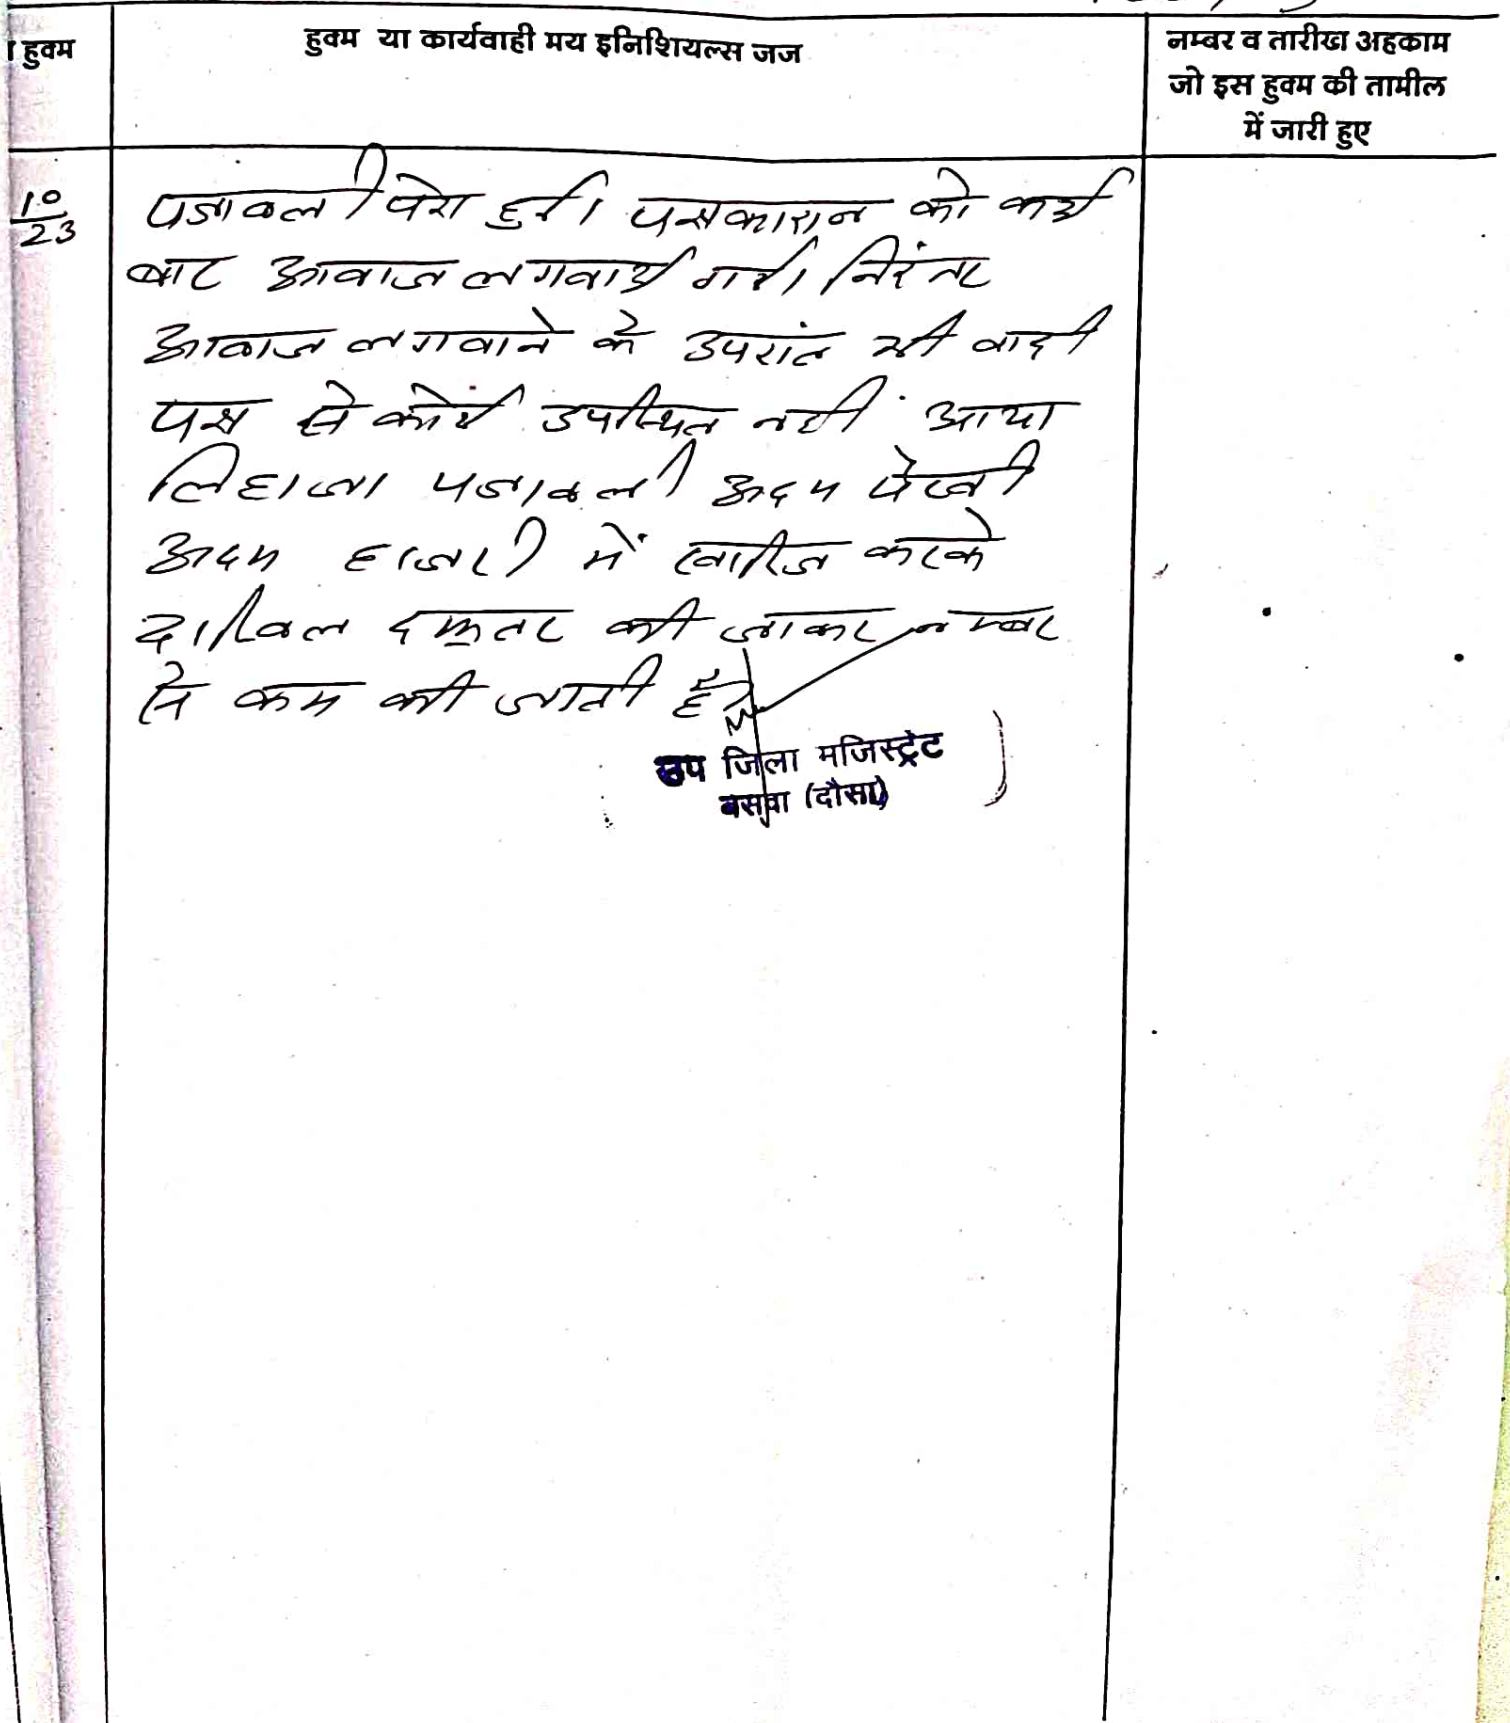 हुक्म
हुक्म या कार्यवाही मय इनिशियल्स जज
नम्बर व तारीख अहकाम
जो इस हुक्म की तामील
में जारी हुए
10
23
पत्रावली पेश हुई। पक्षकारान को कई
बार आवाज लगवाई गई। निरंतर
आवाज लगवाने के उपरांत भी वादी
पक्ष से कोई उपस्थित नहीं आया
लिहाजा पत्रावली अदम पैरवी
अदम हाजरी में खारिज करके
दाखिल दफ्तर की जाकर नम्बर
से कम की जाती है।
उप जिला मजिस्ट्रेट
बसवा (दौसा)